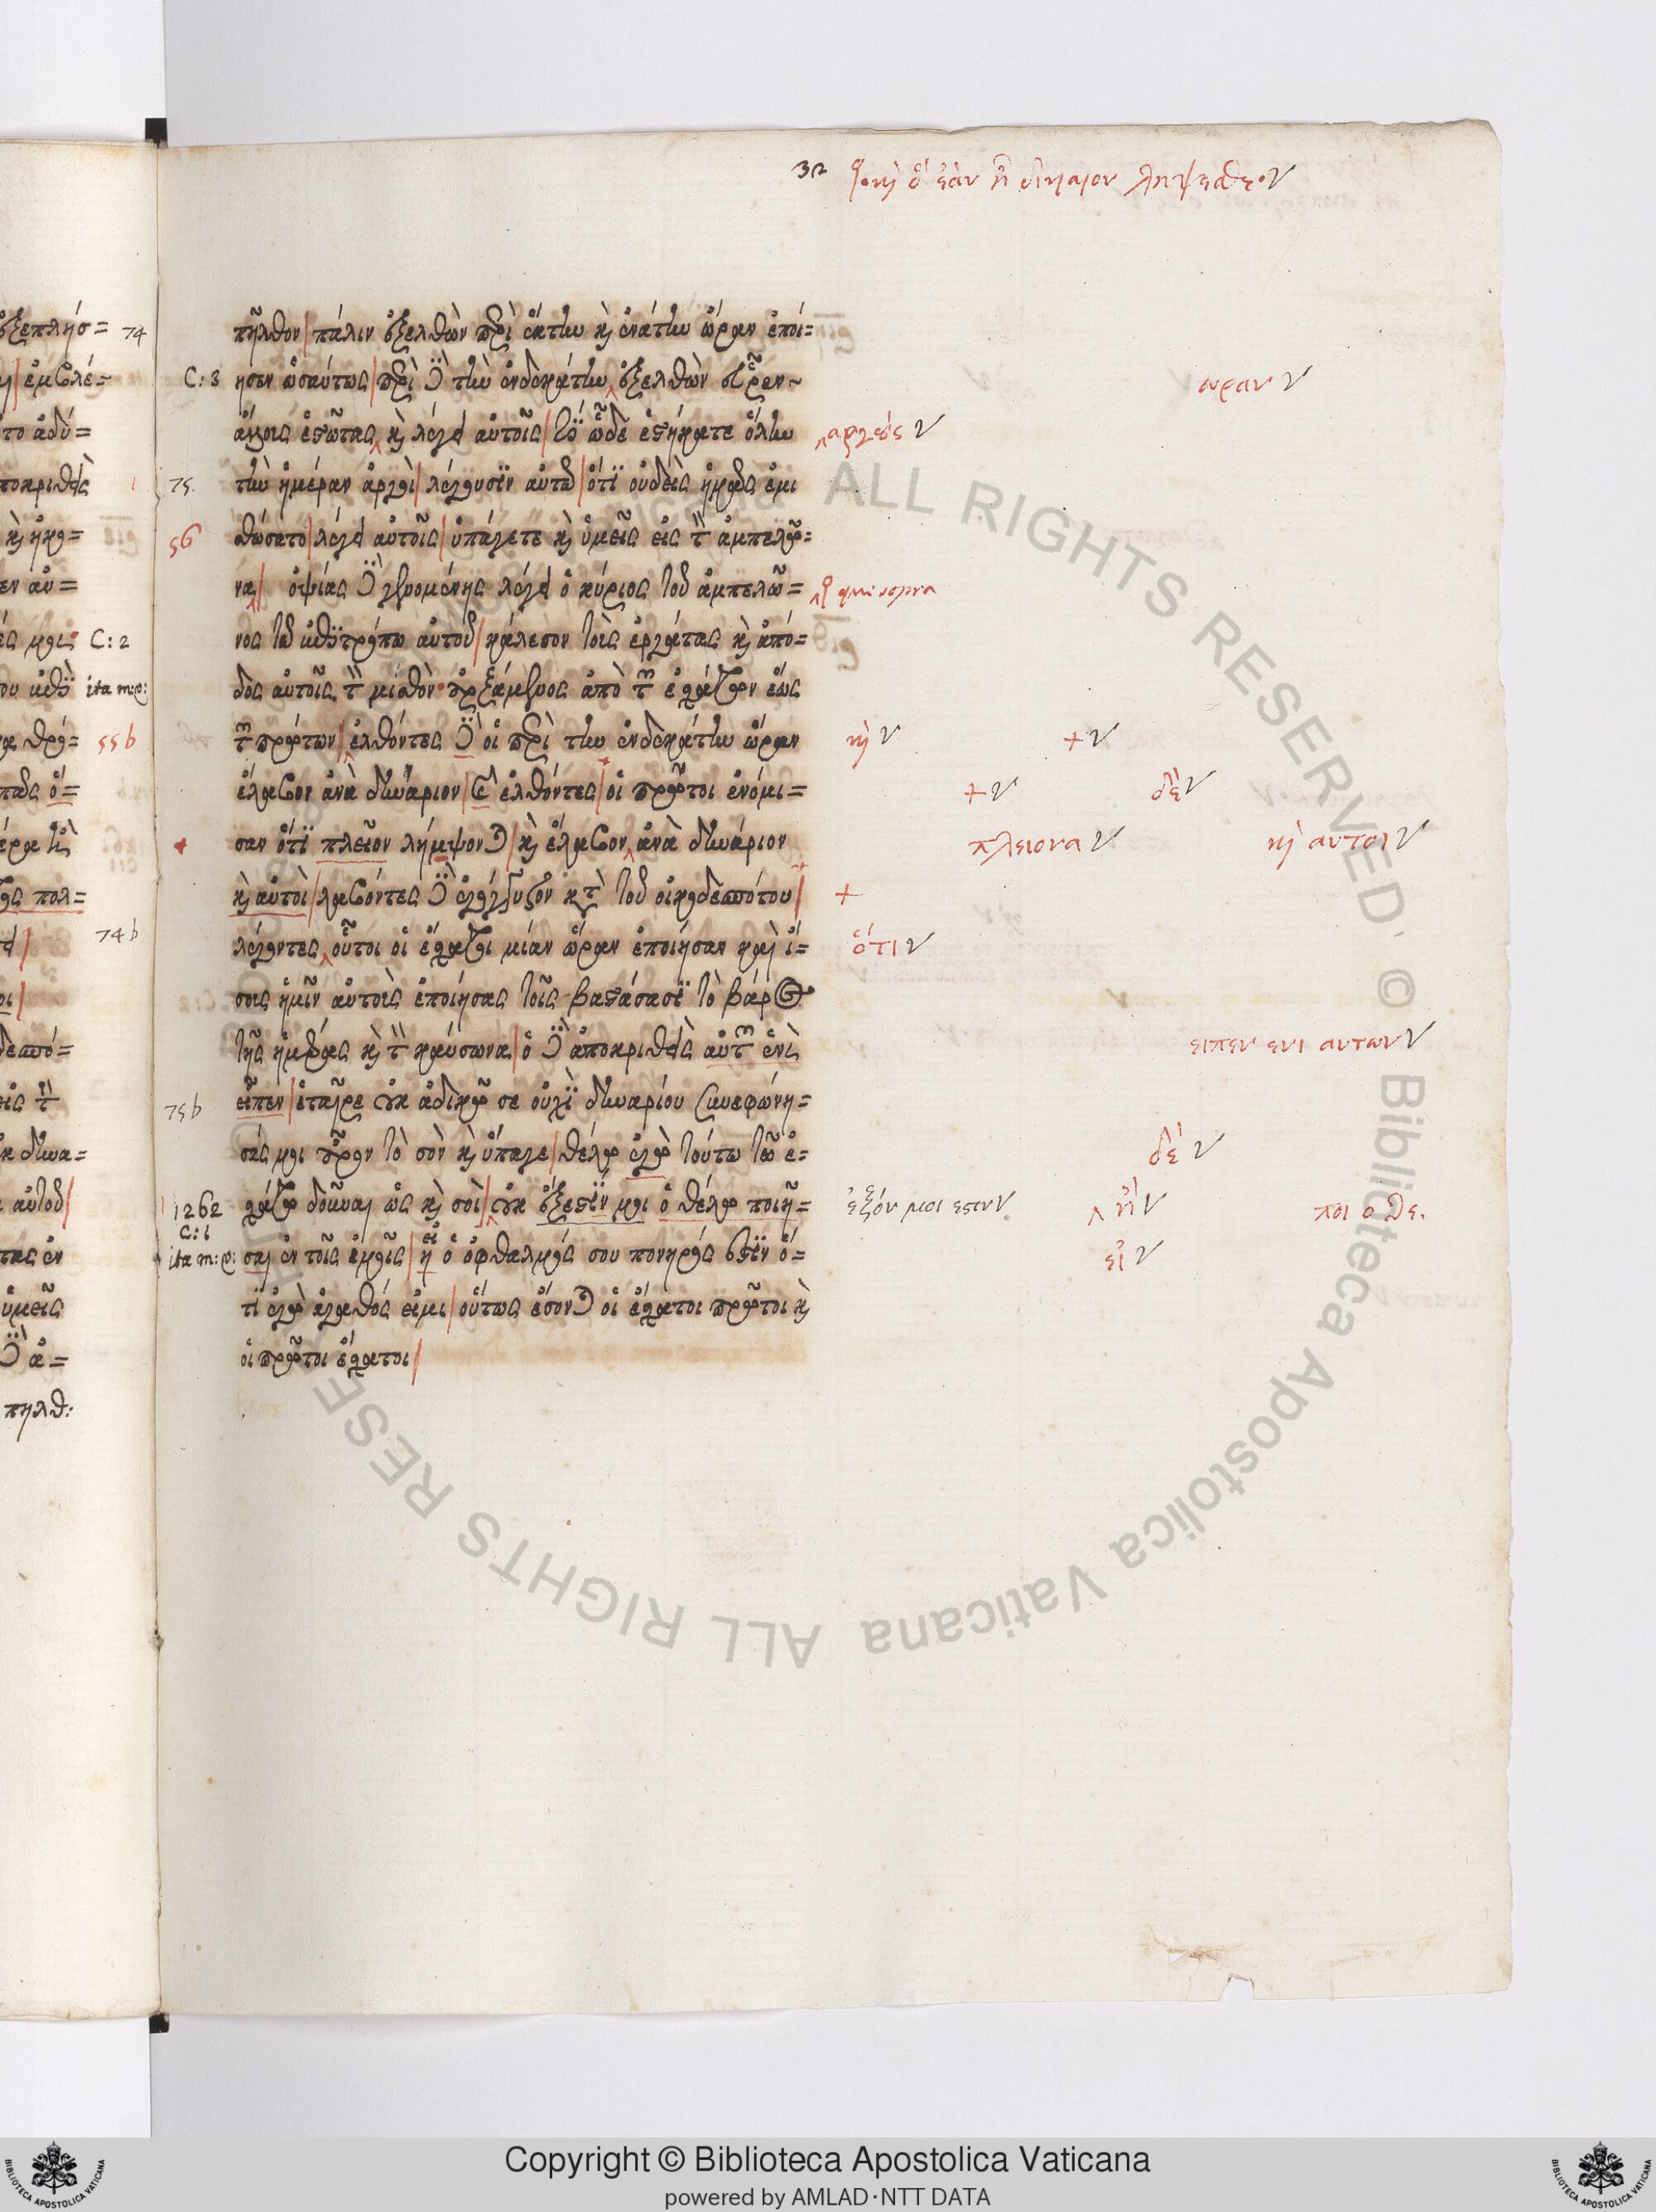 32 καὶ ὃ ἐὰν ἦ δίκαιον λήψεσθε
πῆλθον πάλιν ἐξελθὼν περὶ ἕκτην καὶ ἐνάτην ὥραν ἐποί=
C:3 ησεν ὡσαύτως περὶ δὲ τὴν ἑνδεκάτην ἐξελθὼν εὗρεν~ ωραν
ἄλλους ἑστῶτας καὶ λέγει αὐτοῖς τί ὧδε ἑστήκατε ὅλην αργούς
75. τὴν ἡμέραν ἀργοὶ λέγουσϊν αὐτῶ ὅτϊ οὐδεὶς ἡμᾶς ἐμι
56 θώσατο λέγει αὐτοῖς ὑπάγετε καὶ ὑμεῖς εἰς τὸν ἀμπελῶ=
να ὀψίας δὲ γενομένης λέγει ὁ κύριος τοῦ ἀμπελῶ=
νος τῶ ἐπιτρόπω αὐτοῦ κάλεσον τοὺς ἐργάτας καὶ ἀπό=
δος αὐτοῖς τὸν μισθὸν ἀρξάμενος ἀπὸ τῶν ἐσχάτων ἕως
τῶν πρώτων ἐλθόντες δὲ οἱ περὶ τὴν ἑνδεκάτην ὥραν καὶ +
ἔλαβον ἀνὰ δηνάριον καὶ ἐλθόντες οἱ πρῶτοι ἐνόμι= + δὲ
σαν ὅτϊ πλεῖον λήμψονται καὶ ἔλαβον ἀνὰ δηνάριον πλειονα καὶ αυτοι
καὶ αὐτοὶ λαβόντες δὲ ἐγόγγυζον κατὰ τοῦ οἰκοδεσπότου +
λέγοντες οὗτοι οἱ ἔσχατοι μίαν ὥραν ἐποίησαν καὶ ἴ= ὅτι
σους ἡμῖν αὐτοὺς ἐποίησας τοῖς βαστάσασϊ τὸ βάρος
τῆς ἡμέρας καὶ τὸν καύσωνα ὁ δὲ ἀποκριθεὶς αὐτῶν ἑνὶ ειπεν ενι αυτων
75b εἶπεν ἑταῖρε οὐκ ἀδικῶ σε οὐχὶ δηναρίου συνεφώνη=
σάς μοι ἆρον τὸ σὸν καὶ ὕπαγε θέλω ἐγὼ τούτω τῶ ἐ= δὲ
1262 σχάτω δοῦναι ὡς καὶ σοὶ οὐκ ἔξεστϊν μοι ὃ θέλω ποιῆ= ἐξόν μοι εστιν ἢ ποι ο θε.
C:1
ita m:o: σαι ἐν τοῖς ἐμοῖς ἢ ὁ ὀφθαλμός σου πονηρός ἐστϊν ὅ= εἰ
τϊ ἐγὼ ἀγαθός εἰμι οὕτως ἔσονται οἱ ἔσχατοι πρῶτοι καὶ
οἱ πρῶτοι ἔσχατοι
74
C:2
ita m:o:
55b
74b
ALL RIGHTS RESERVED © Biblioteca Apostolica Vaticana ALL RIGHTS RESE
Copyright © Biblioteca Apostolica Vaticana
powered by AMLAD·NTT DATA
BIBLIOTECA APOSTOLICA VATICANA
BIBLIOTECA APOSTOLICA VATICANA